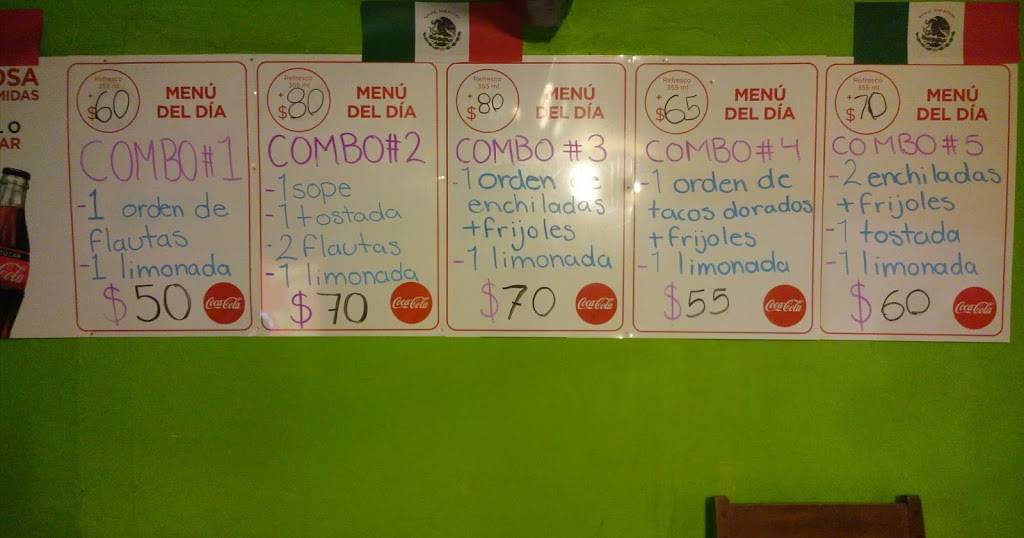 OSA
MIDAS
O
AR
Coca-Cola
Refresco
355 ml
+
$60
MENÚ
DEL DÍA
COMBO#1
-1 orden de
flautas
-1 limonada
$50
Coca-Cola
Refresco
355 ml
+
$80
MENÚ
DEL DÍA
COMBO#2
-1 sope
-1 tostada
-2 flautas
-1 limonada
$70
Coca-Cola
Refresco
355 ml
+
$80
MENÚ
DEL DÍA
COMBO #3
-1 orden de
enchiladas
+frijoles
-1 limonada
$70
Coca-Cola
Refresco
355 ml
+
$65
MENÚ
DEL DÍA
COMBO #4
-1 orden de
tacos dorados
+frijoles
-1 limonada
$55
Coca-Cola
Refresco
355 ml
+
$70
MENÚ
DEL DÍA
COMBO #5
-2 enchiladas
+frijoles
-1 tostada
-1 limonada
$60
Coca-Cola